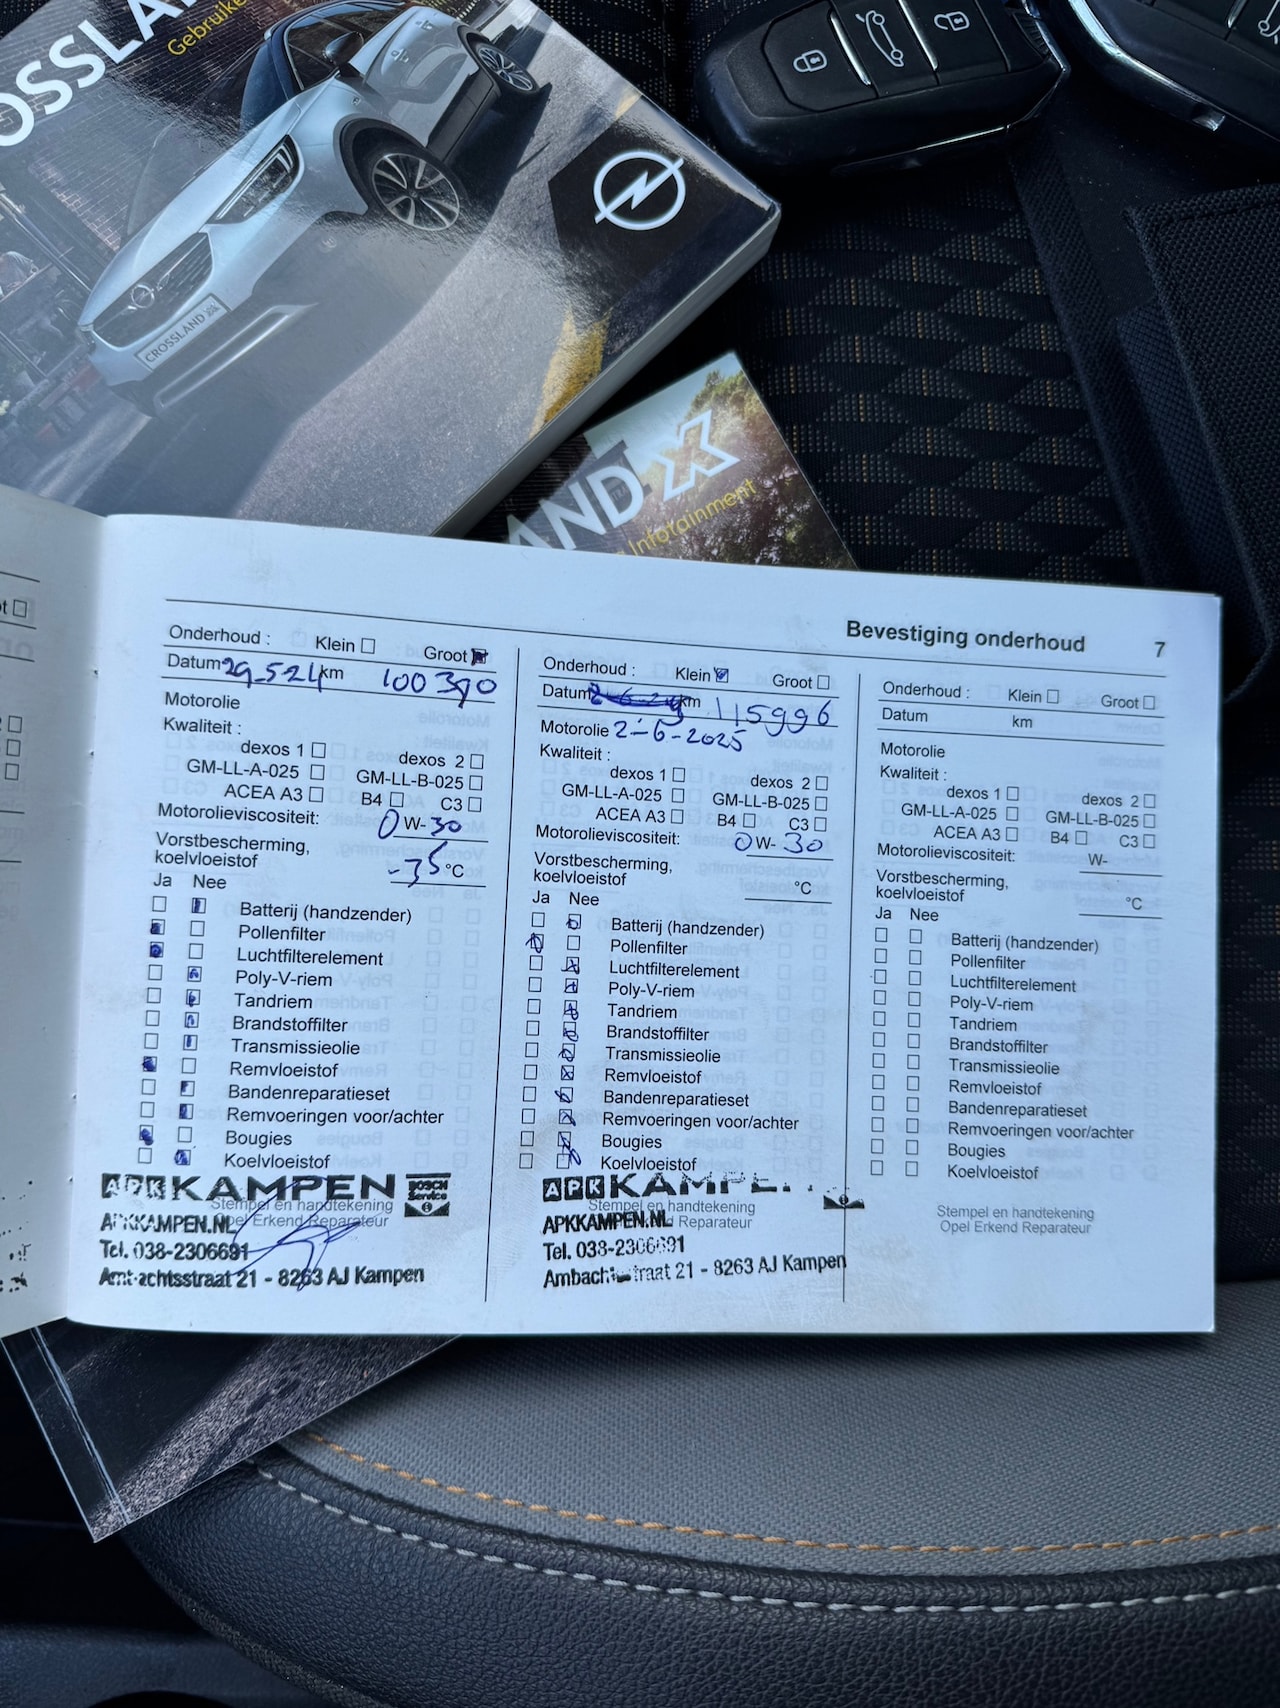 Gebruike
CROSSLAND X
AND X
Infotainment
Bevestiging onderhoud 7
Onderhoud : Klein Groot
Datum 29-5-24 km 100390
Motorolie
Kwaliteit :
dexos 1 dexos 2
GM-LL-A-025 GM-LL-B-025
ACEA A3 B4 C3
Motorolieviscositeit: 0 W- 30
Vorstbescherming,
koelvloeistof -35 °C
Ja Nee
Batterij (handzender)
Pollenfilter
Luchtfilterelement
Poly-V-riem
Tandriem
Brandstoffilter
Transmissieolie
Remvloeistof
Bandenreparatieset
Remvoeringen voor/achter
Bougies
Koelvloeistof
APK KAMPEN BOSCH Service
Stempel en handtekening
Opel Erkend Reparateur
APKKAMPEN.NL
Tel. 038-2306691
Ambachtsstraat 21 - 8263 AJ Kampen
Onderhoud : Klein Groot
Datum 2-6-24 km 115996
Motorolie 2-6-2025
Kwaliteit :
dexos 1 dexos 2
GM-LL-A-025 GM-LL-B-025
ACEA A3 B4 C3
Motorolieviscositeit: 0 W- 30
Vorstbescherming,
koelvloeistof °C
Ja Nee
Batterij (handzender)
Pollenfilter
Luchtfilterelement
Poly-V-riem
Tandriem
Brandstoffilter
Transmissieolie
Remvloeistof
Bandenreparatieset
Remvoeringen voor/achter
Bougies
Koelvloeistof
APK KAMPEN
Stempel en handtekening
Opel Erkend Reparateur
APKKAMPEN.NL
Tel. 038-2306691
Ambachtsstraat 21 - 8263 AJ Kampen
Onderhoud : Klein Groot
Datum km
Motorolie
Kwaliteit :
dexos 1 dexos 2
GM-LL-A-025 GM-LL-B-025
ACEA A3 B4 C3
Motorolieviscositeit: W-
Vorstbescherming,
koelvloeistof °C
Ja Nee
Batterij (handzender)
Pollenfilter
Luchtfilterelement
Poly-V-riem
Tandriem
Brandstoffilter
Transmissieolie
Remvloeistof
Bandenreparatieset
Remvoeringen voor/achter
Bougies
Koelvloeistof
Stempel en handtekening
Opel Erkend Reparateur